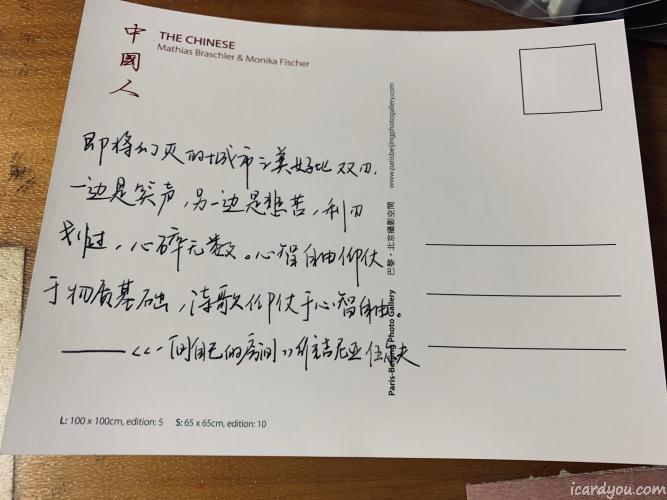 中國人
THE CHINESE
Mathias Braschler & Monika Fischer
即将幻灭的城市之美好比双刃,
一边是笑声,另一边是悲苦,利刃
划过,心碎无数。心智自由仰仗
于物质基础,诗歌仰仗于心智自由。
——《一间自己的房间》维吉尼亚伍尔夫
L: 100 x 100cm, edition: 5 S: 65 x 65cm, edition: 10
Paris-Beijing Photo Gallery 巴黎·北京攝影空間 www.parisbeijingphotogallery.com
icardyou.com